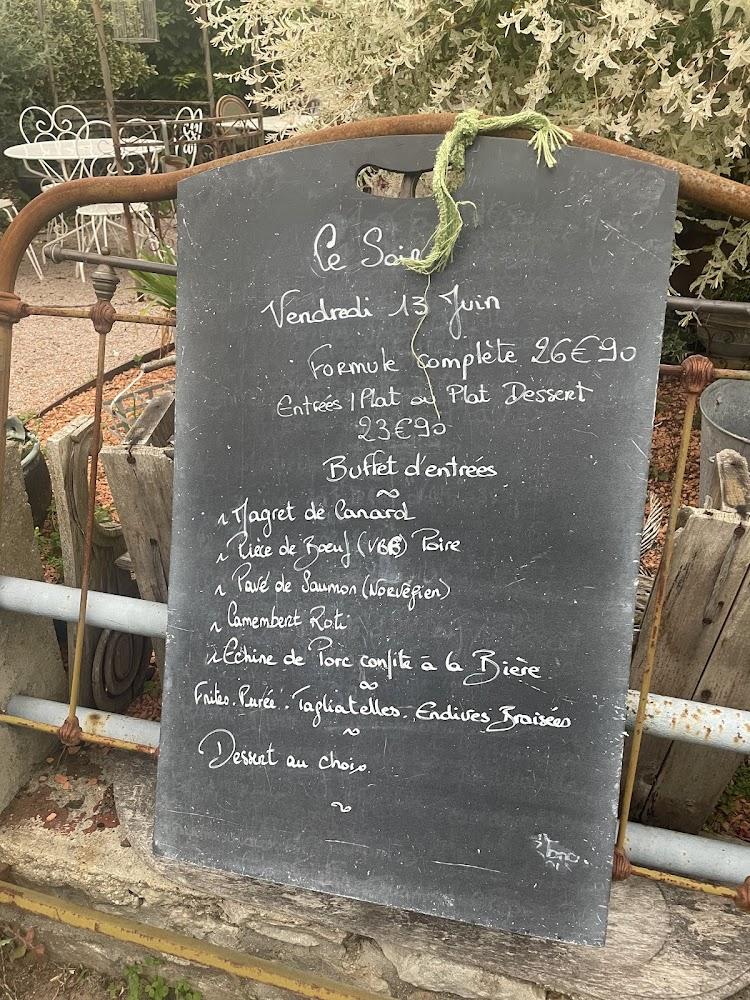 Ce Soir
Vendredi 13 Juin
Formule complète 26€90
Entrées / Plat ou Plat Dessert
23€90
Buffet d'entrées
~
~ Magret de Canard
~ Pièce de Boeuf (VBF) Poire
~ Pavé de Saumon (Norvégien)
~ Camembert Roti
~ Echine de Porc confite à la Bière
~
Frites. Purée. Tagliatelles. Endives Braisées
~
Dessert au choix
~